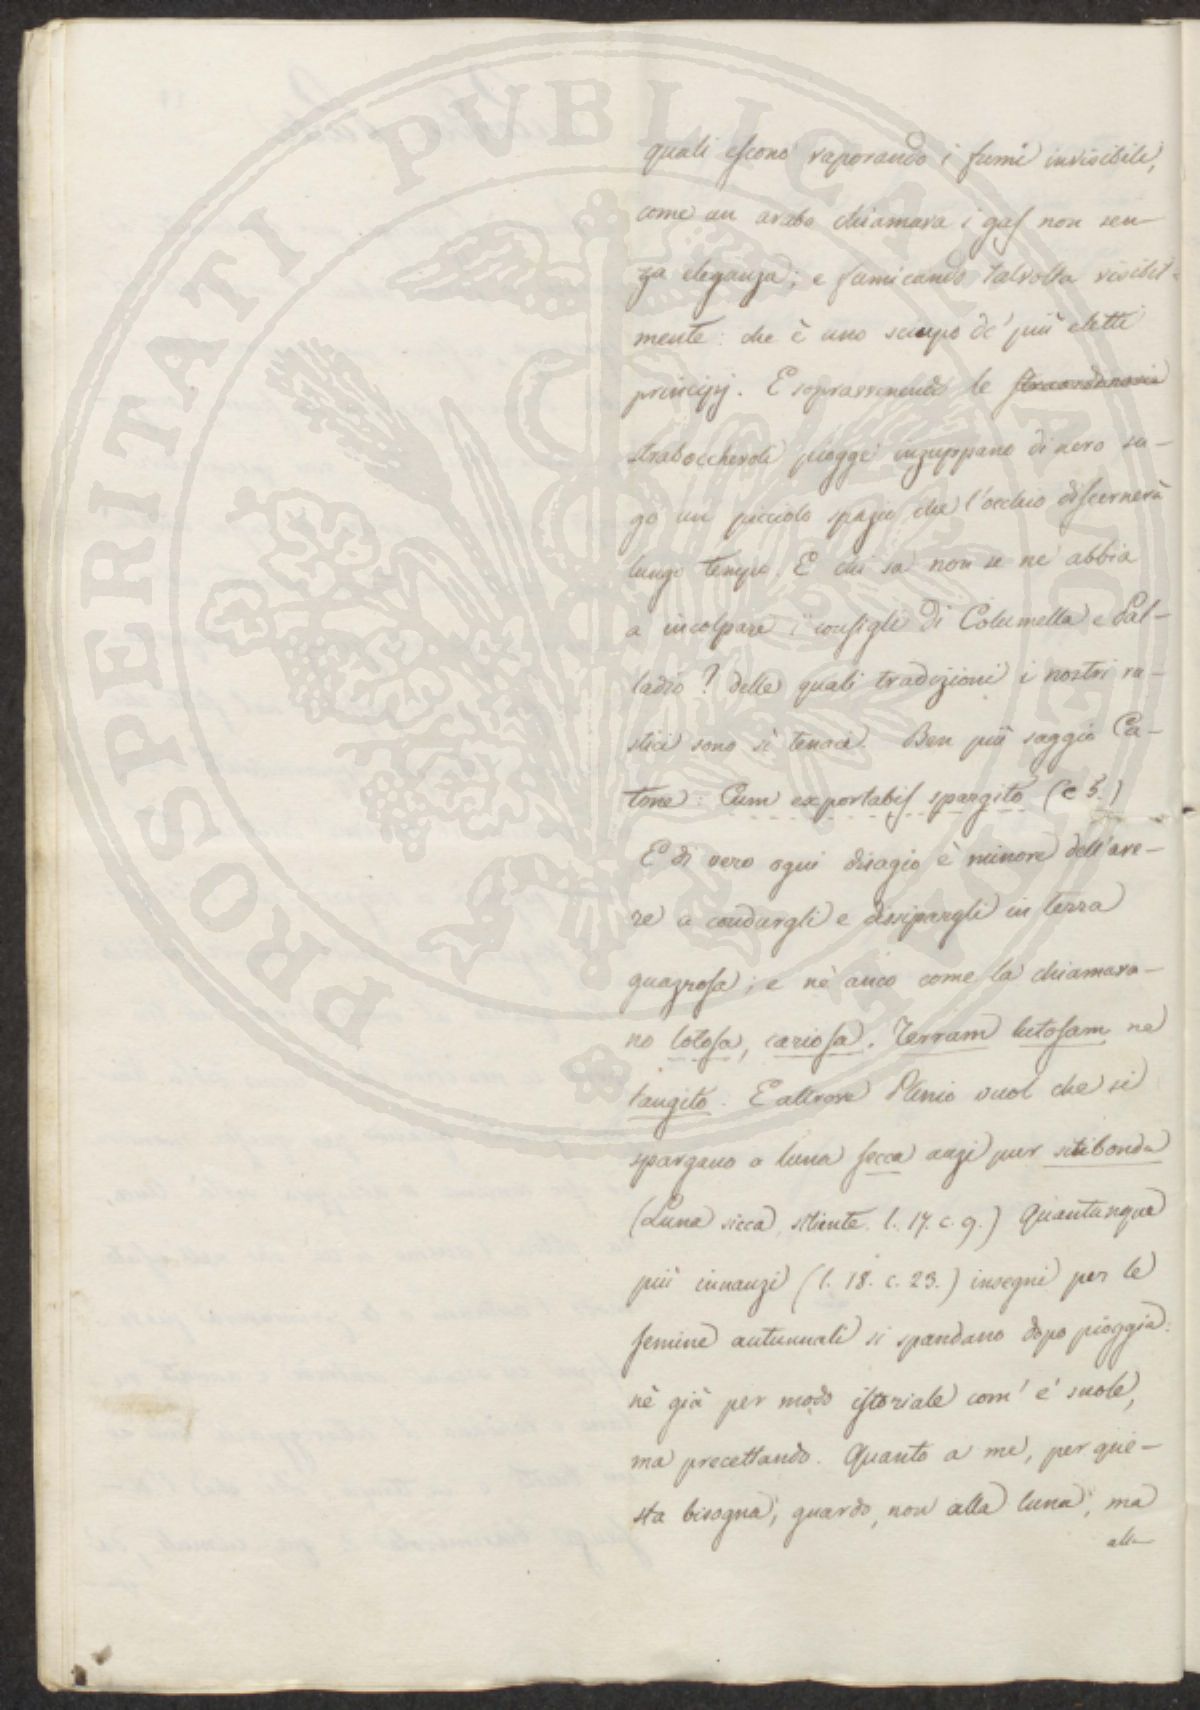 quali escono vaporando i fumi invisibili,
come un arabo chiamava i gas non sen-
za eleganza; e fumicando talvolta visibil-
mente: che è uno sciupo de' più eletti
principj. E sopravvenendo le straordinarie
straboccheroli piogge inzuppano di nero su-
go un picciolo spazio che l'occhio discernerà
lungo tempo. E chi sa non se ne abbia
a incolpare i consigli di Columella e Pal-
ladio? delle quali tradizioni i nostri ru-
stici sono sì tenaci. Ben più saggio Ca-
tone: Cum exportabis spargito (c 5.)
E di vero ogni disagio è minore dell'ave-
re a condurgli e dissipargli in terra
guazzosa; e nè anco come la chiamava-
no lotosa, cariosa. Terram lutosam ne
tangito. E altrove Plinio vuol che si
spargano a luna secca anzi pur sitibonda
(Luna sicca sitiente. l. 17. c. 9.) Quantunque
più innanzi (l. 18. c. 23.) insegni per le
semine autunnali si spandano dopo pioggia:
nè già per modo istoriale com' e' suole,
ma precettando. Quanto a me, per que-
sta bisogna, guardo, non alla luna, ma
alla
PROSPERITATI PUBLICAE AUGENDAE